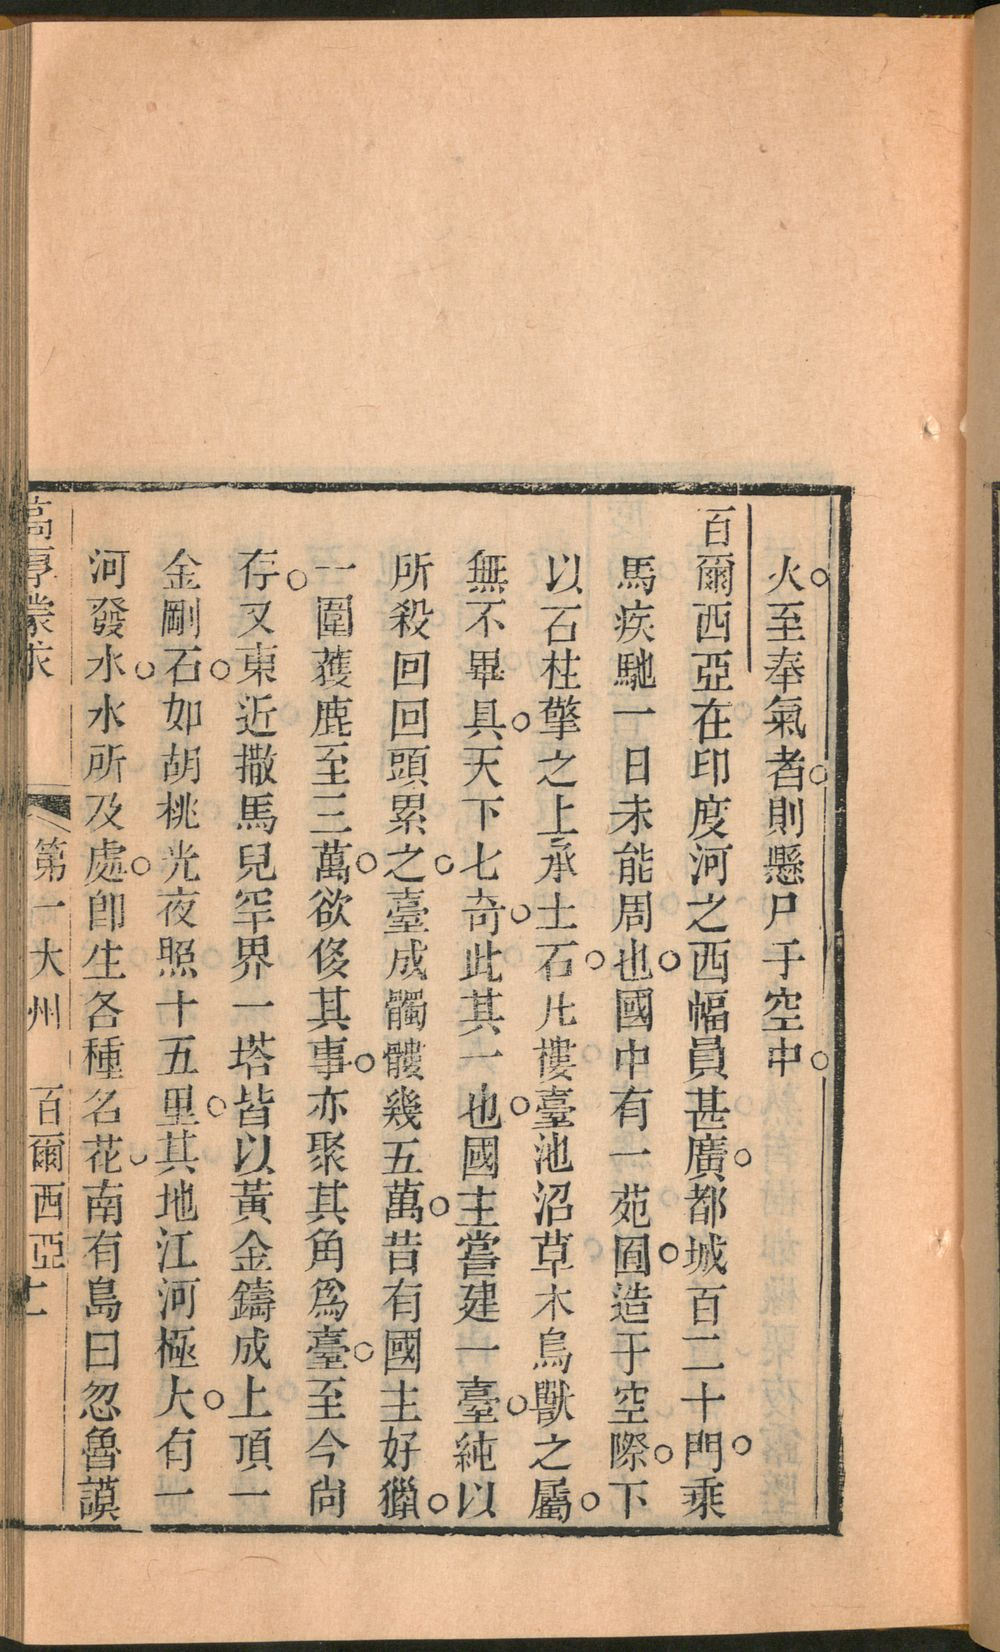 火至奉氣者則懸尸于空中
百爾西亞在印度河之西幅員甚廣都城百二十門乘
馬疾馳一日未能周也國中有一苑囿造于空際下
以石柱擎之上承土石凡樓臺池沼草木鳥獸之屬
無不畢具天下七奇此其一也國主嘗建一臺純以
所殺回回頭累之臺成髑髏幾五萬昔有國主好獵
一圍獲鹿至三萬欲侈其事亦聚其角爲臺至今尙
存又東近撒馬兒罕界一塔皆以黃金鑄成上頂一
金剛石如胡桃光夜照十五里其地江河極大有一
河發水水所及處卽生各種名花南有島曰忽魯謨
高厚蒙求 第一大州 百爾西亞 十一